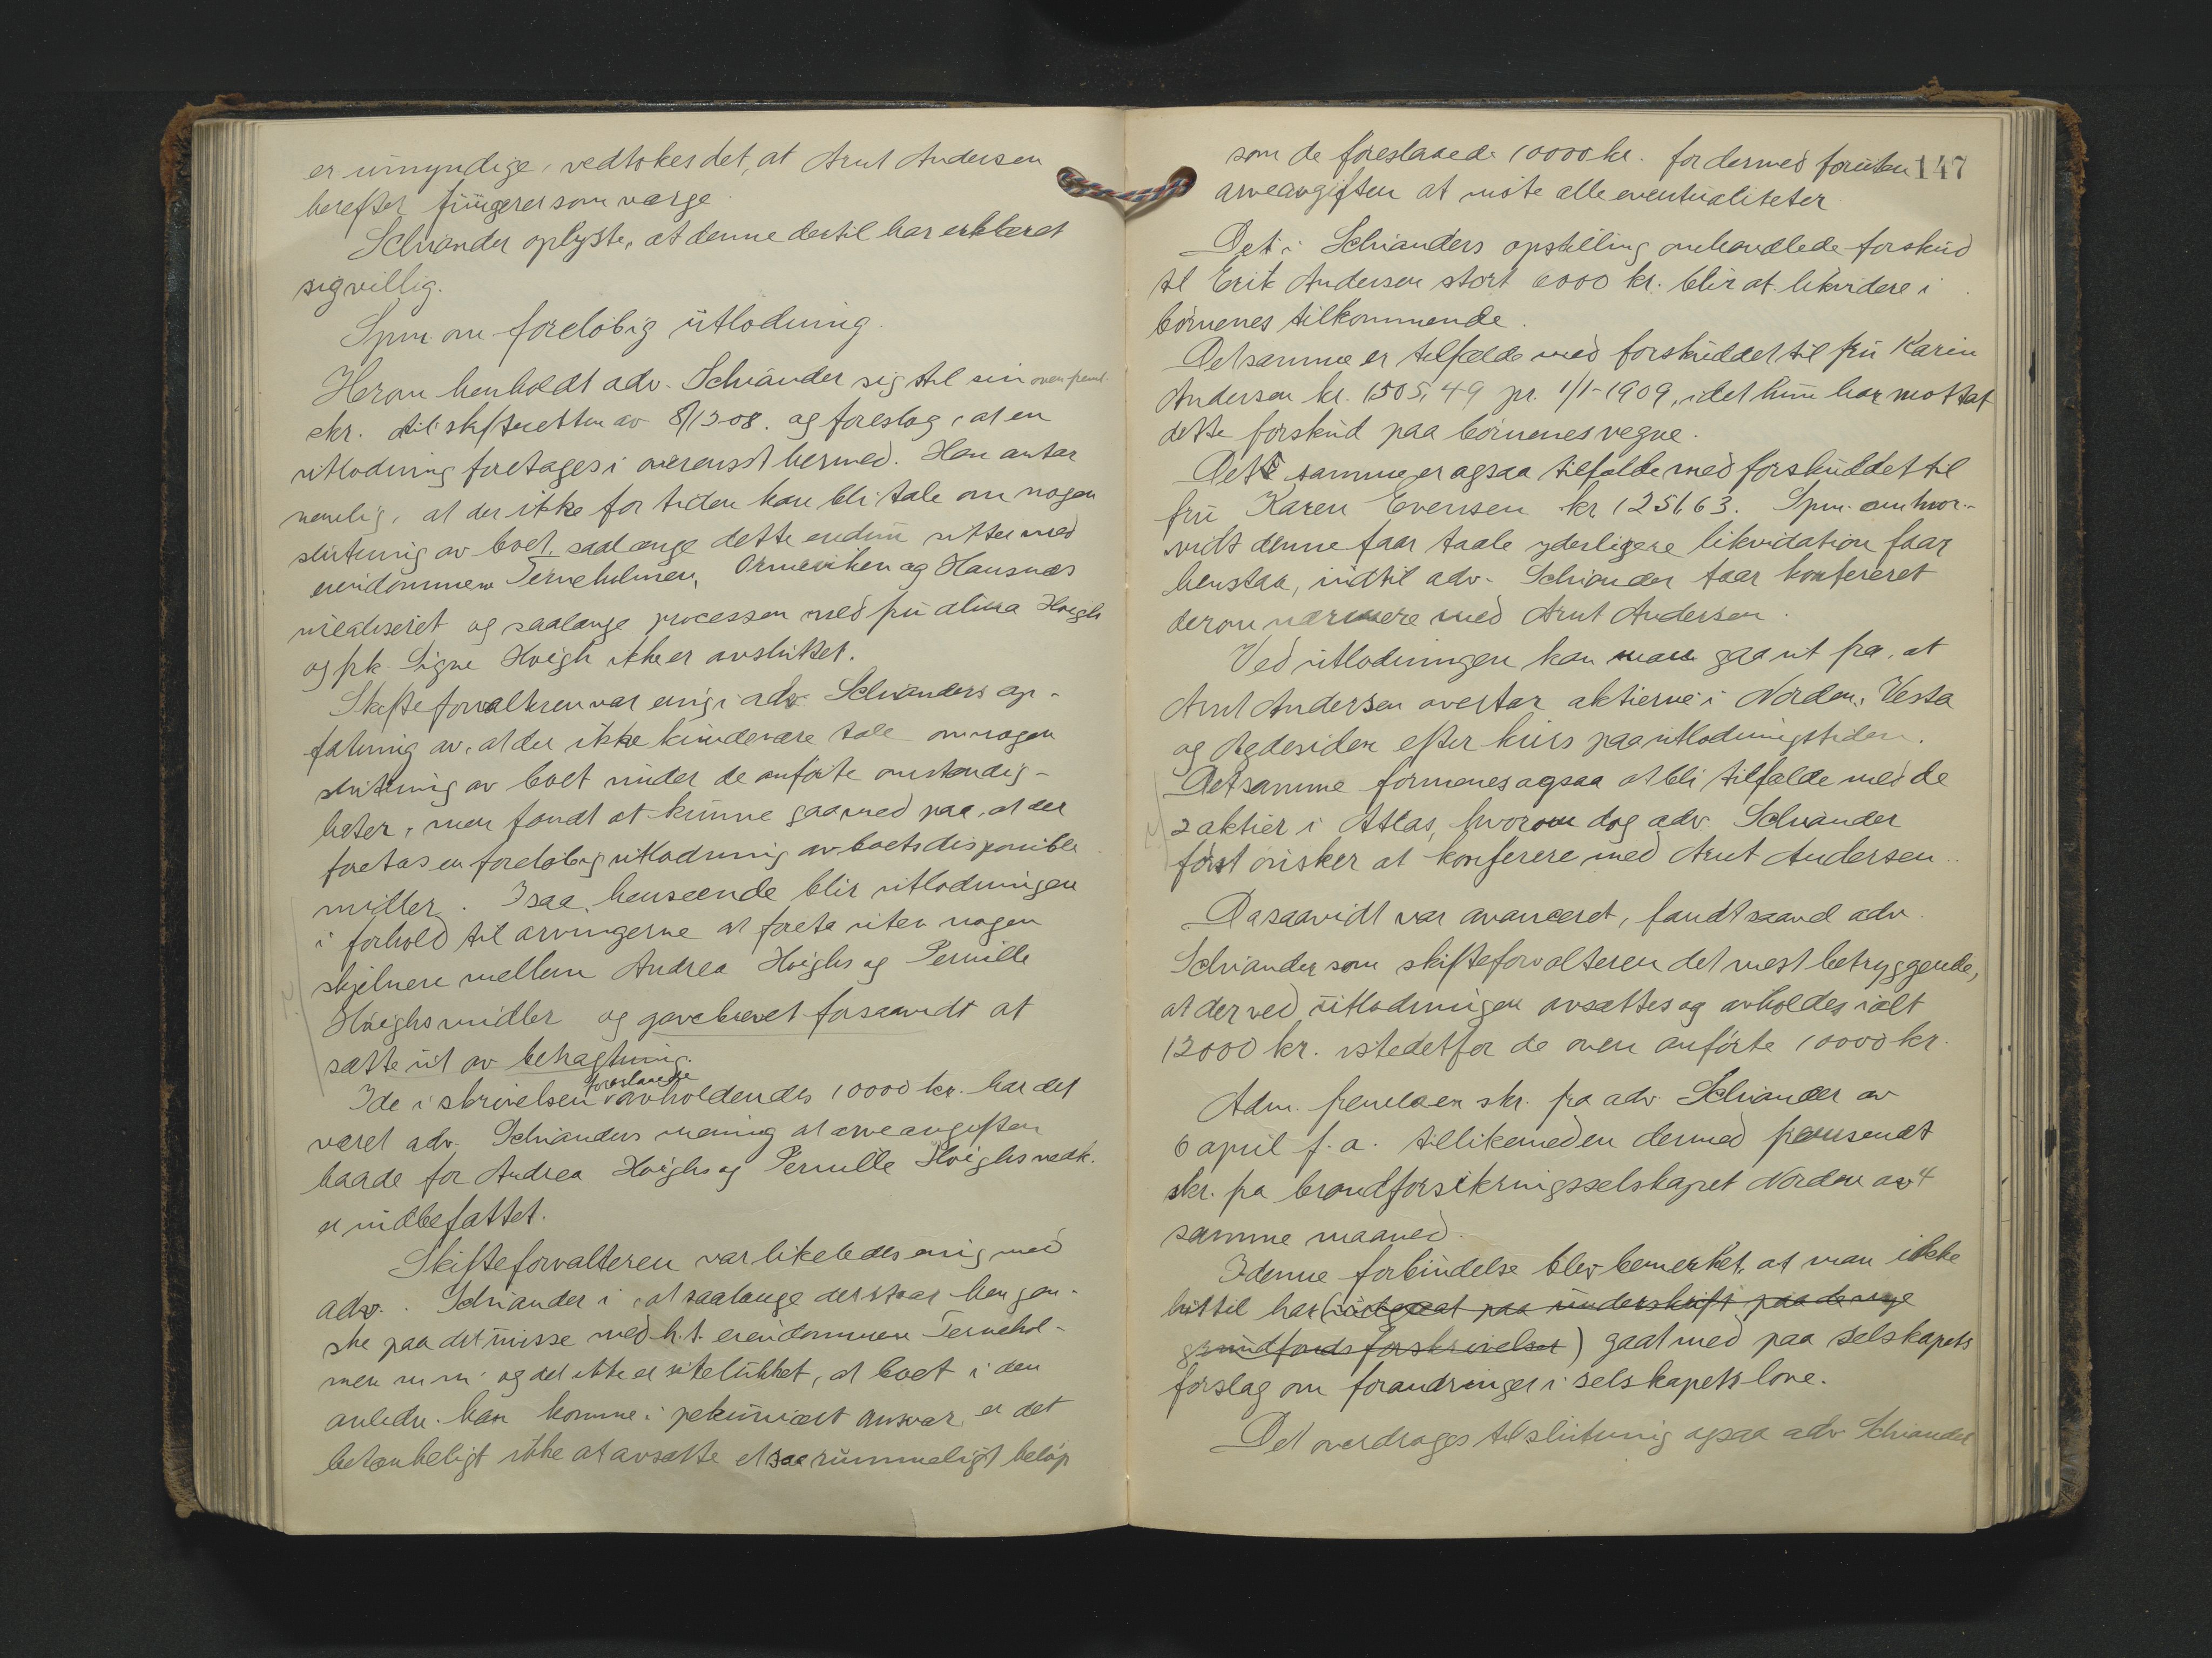 er umyndige, vedtokes det, at Arnt Andersen
herefter fungerer som værge.
Schiander oplyste, at denne dertil har erklæret
sig villig.
Spm. om foreløbig utlodning.
Herom henholdt adv. Schiander sig til sin oven freml.
skr. til skifteretten av 8/12 08. og foreslog, at en
utlodning foretages i overensst hermed. Han antar
nemlig, at der ikke for tiden kan bli tale om nogen
slutning av boet, saalænge dette endnu sitter med
eiendommene Terneholmen, Ormeviken og Hausnæs
urealiseret og saalænge processen med fru Alma Høigh
og frk. Signe Høigh ikke er avsluttet.
Skifteforvalteren var enig i adv. Schianders op-
fatning av, at der ikke kunde være tale om nogen
slutning av boet under de anførte omstændig-
heter, men fandt at kunne gaa med paa, at der
foretas en foreløbig utlodning av boets disponible
midler. I saa henseende blir utlodningen
i forhold til arvingerne at foreta uten nogen
skjelnen mellem Andrea Høighs og Pernille
Høighs midler og gavebrevet forsaavidt at
sætte ut av betragtning.
foreslaaede
I de i skrivelsen avholdendes 10000 kr. har det
været adv. Schianders mening at arveavgiften
baade for Andrea Høighs og Pernille Høighs vedk.
er indbefattet.
Skifteforvalteren var likeledes enig med
adv. Schiander i, at saalænge der staar hen gan-
ske paa det uvisse med h.t. eiendommen Ternehol-
men m m og det ikke er utelukket, at boet i den
anledn. kan komme i pekuniært ansvar, er det
betænkeligt ikke at avsætte et saa rummeligt beløp
147
som de foreslaaede 10000 kr. for dermed foruten
arveavgiften at møte alle eventualiteter
Det i Schianders opstilling omhandlede forskud
til Erik Andersen stort 6000 kr. blir at likvidere i
børnenes tilkommende.
Det samme er tilfælde med forskuddet til fru Karin
Andersen kr. 1505,49 pr. 1/1-1909, idet hun har mottat
dette forskud paa børnenes vegne.
Det samme er ogsaa tilfælde med forskuddet til
fru Karen Evensen kr 1251 63. Spm. om hvor-
vidt denne faar taale yderligere likvidation faar
henstaa, indtil adv. Schiander faar konfereret
derom nærmere med Arnt Andersen.
Ved utlodningen kan man gaa ut fra, at
Arnt Andersen overtar aktierne i Norden, Vesta
og Agdesiden efter kurs paa utlodningstiden.
Det samme formenes ogsaa at bli tilfælde med de
2 aktier i Atlas, hvorom dog adv. Schiander
først ønsker at konferere med Arnt Andersen.
Da saavidt var avanceret, fandt saavel adv.
Schiander som skifteforvalteren det mest betryggende,
at der ved utlodningen avsættes og avholdes ialt
12000 kr. istedetfor de oven anførte 10000 kr.
Adm. fremla en skr. fra adv. Schiander av
6 april f. a. tillikemed en dermed fremsendt
skr. fra brandforsikringsselskapet Norden av 4
samme maaned.
I denne forbindelse blev bemerket, at man ikke
hittil har (indgaat paa underskrift paa de nye
grundfondsforskrivelser) gaat med paa selskapets
forslag om forandringer i selskapets love.
Det overdrages til slutning ogsaa adv. Schiander